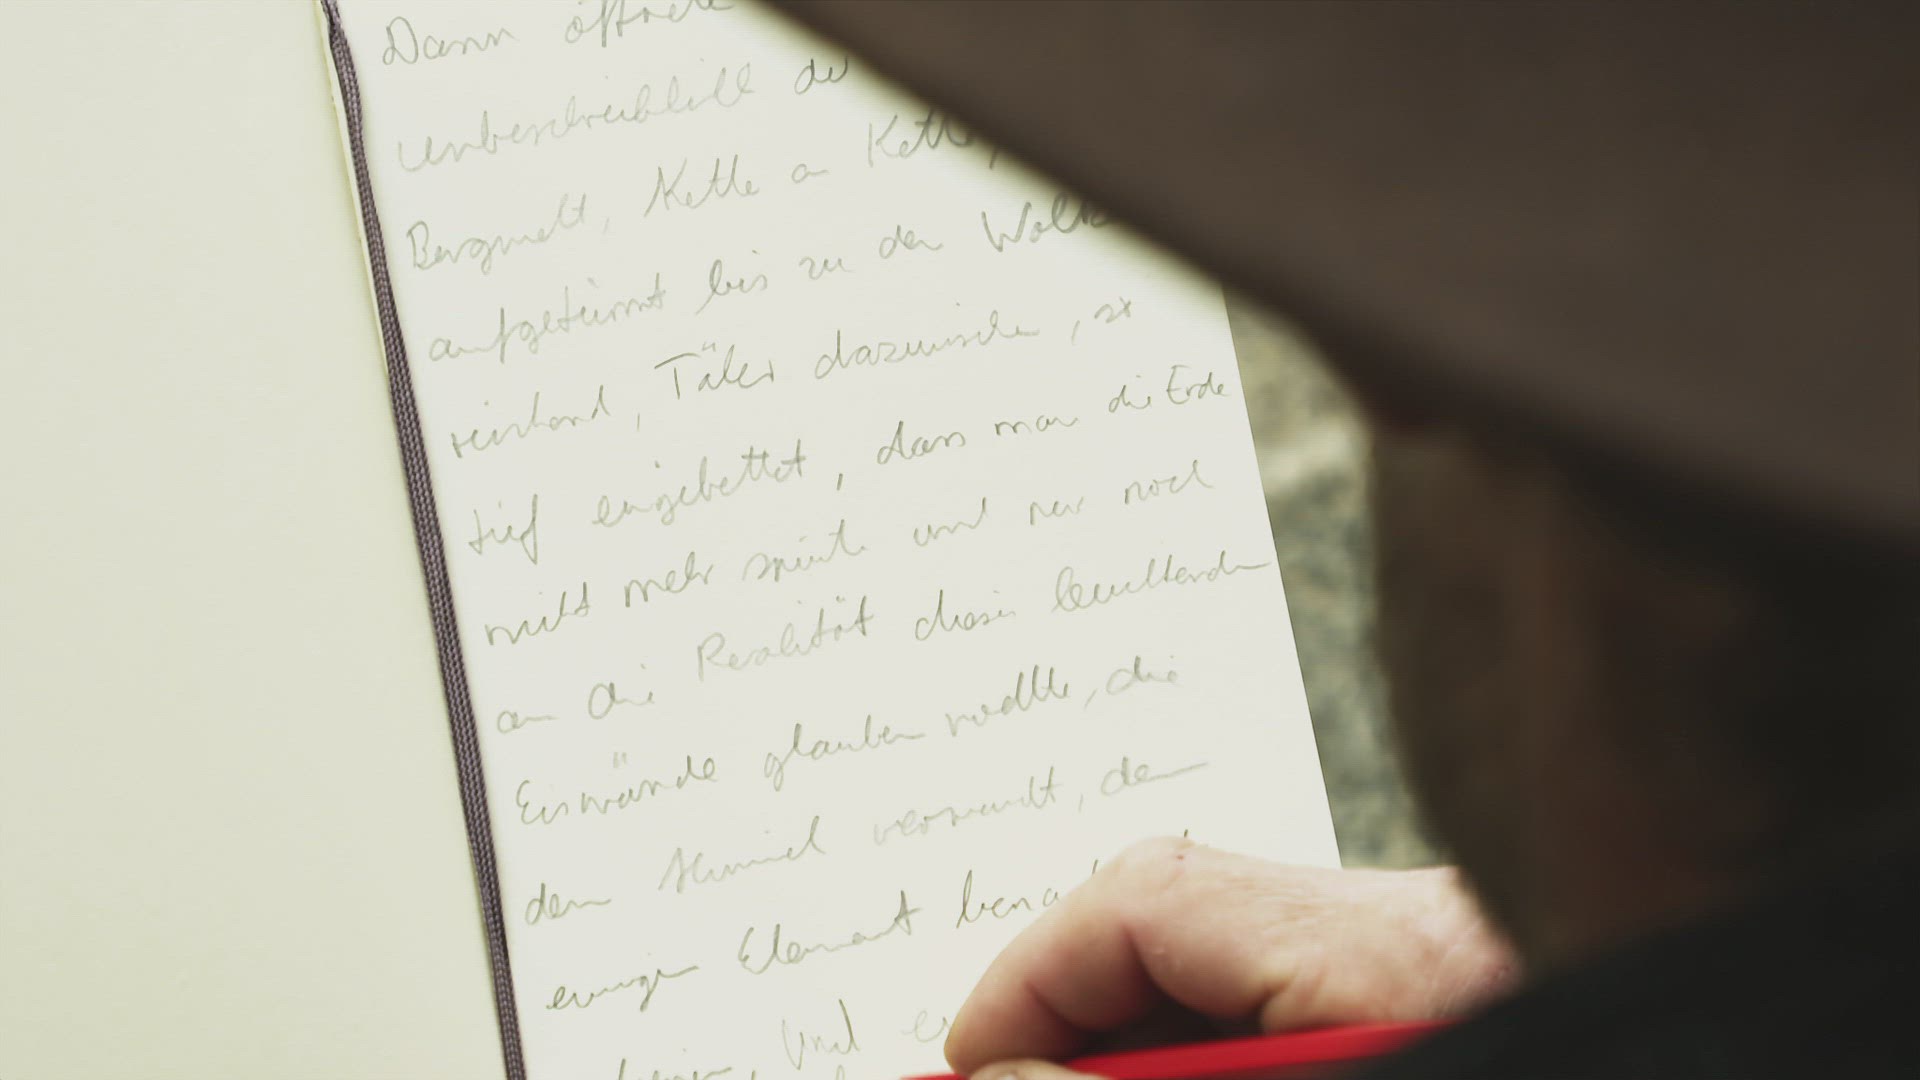 Dann öffnete
unbeschreiblich der
Bergwelt, Kette an Kette,
aufgetürmt bis zu den Wolk
reichend, Täler dazwischen, so
tief eingebettet, dass man die Erde
nicht mehr spürte und nur noch
an die Realität dieser leuchtenden
Eiswände glauben wollte, die
dem Himmel verwandt, dem
ewigen Element bena
und er